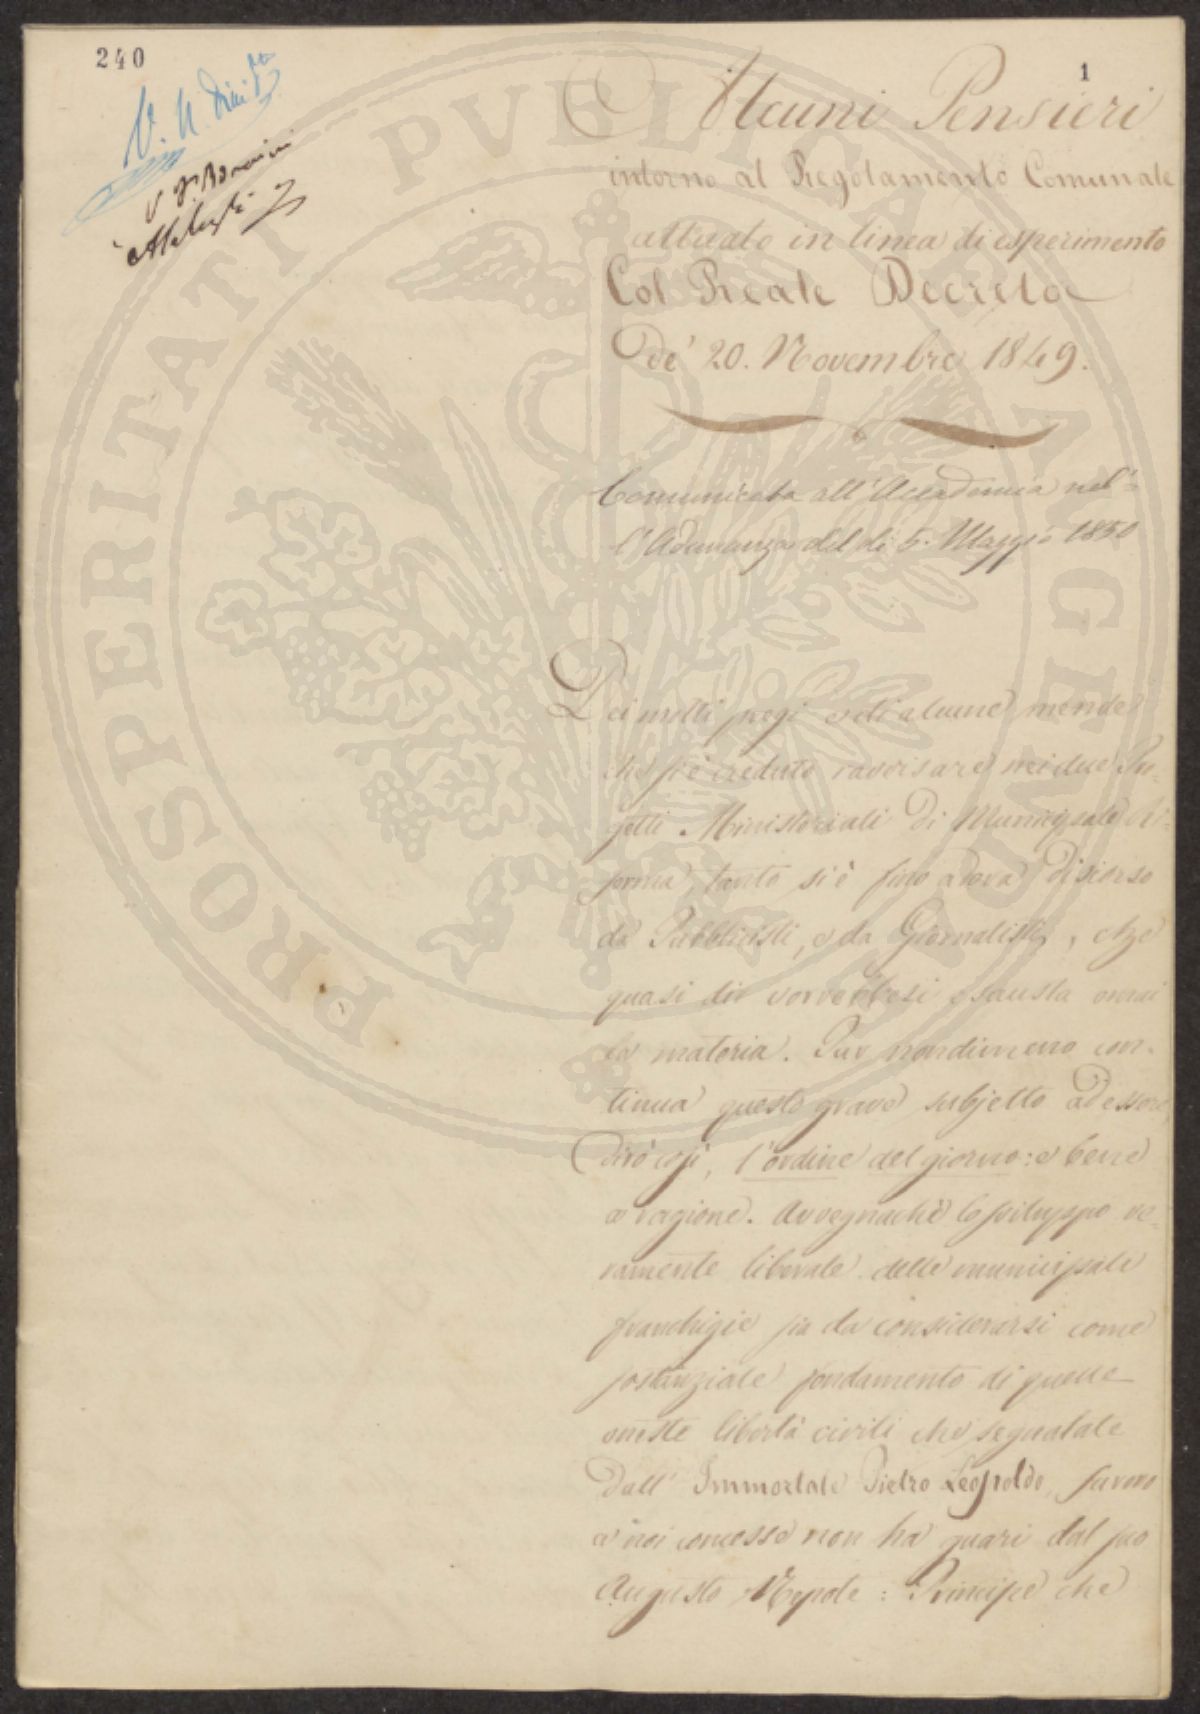 240
1
Alcuni Pensieri
intorno al Regolamento Comunale
attuato in linea di esperimento
Col Reale Decreto
De' 20. Novembre 1849.
Comunicata all'Accademia nel-
l'Adunanza del dì 5. Maggio 1850
Dei molti pregi e di alcune mende
che si è creduto ravvisare nei due Pro-
getti Ministeriali di Municipale Ri-
forma, tanto si è fino adora discorso
da Pubblicisti, e da Giornalisti, che
quasi dir vorrebbesi esausta omai
la materia. Pur nondimeno con-
tinua questo grave subjetto ad essere
dirò così, l'ordine del giorno: e bene
a ragione. Avvegnachè lo sviluppo ve-
ramente liberale delle municipali
franchigie sia da considerarsi come
sostanziale fondamento di quelle
oneste libertà civili che segnalate
Dall' Immortale Pietro Leopoldo, furono
a noi concesse non ha guari dal suo
Augusto Nepote: Principe che
PROSPERITATI PVBLICAE AVGENDAE